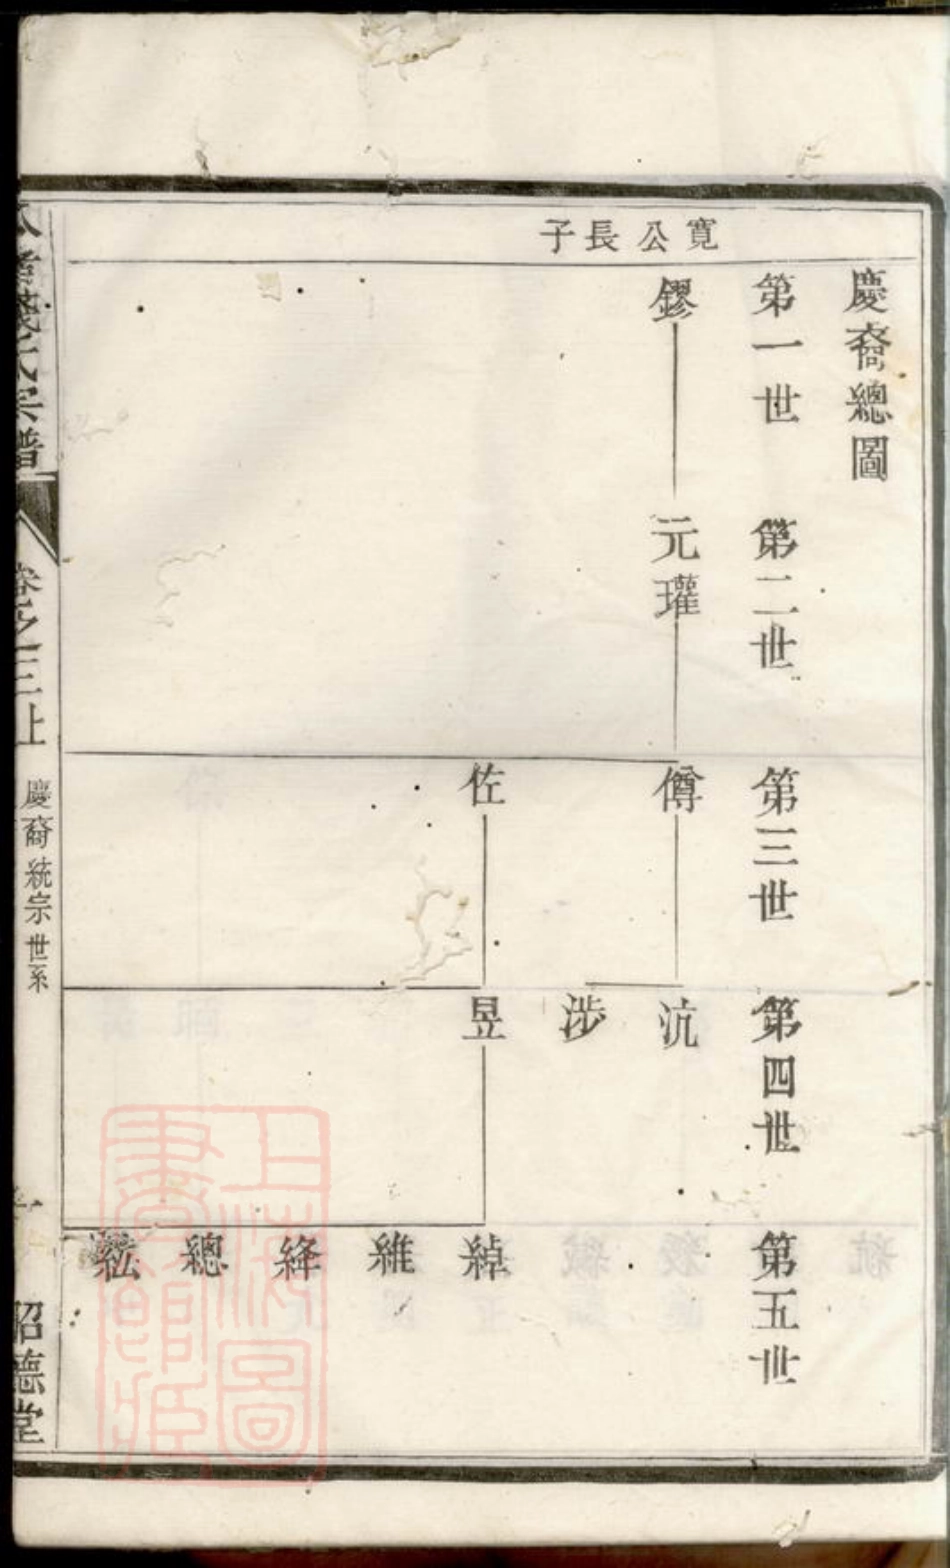 慶裔總圖
寬公長子
第一世
第二世
第三世
第四世
第五世
鏐
元瓘
僔
佐
沆
涉
昱
綽
維
絳
總
紘
氏宗譜
卷之三上
慶裔統宗世系
一
昭德堂
上海圖書館藏